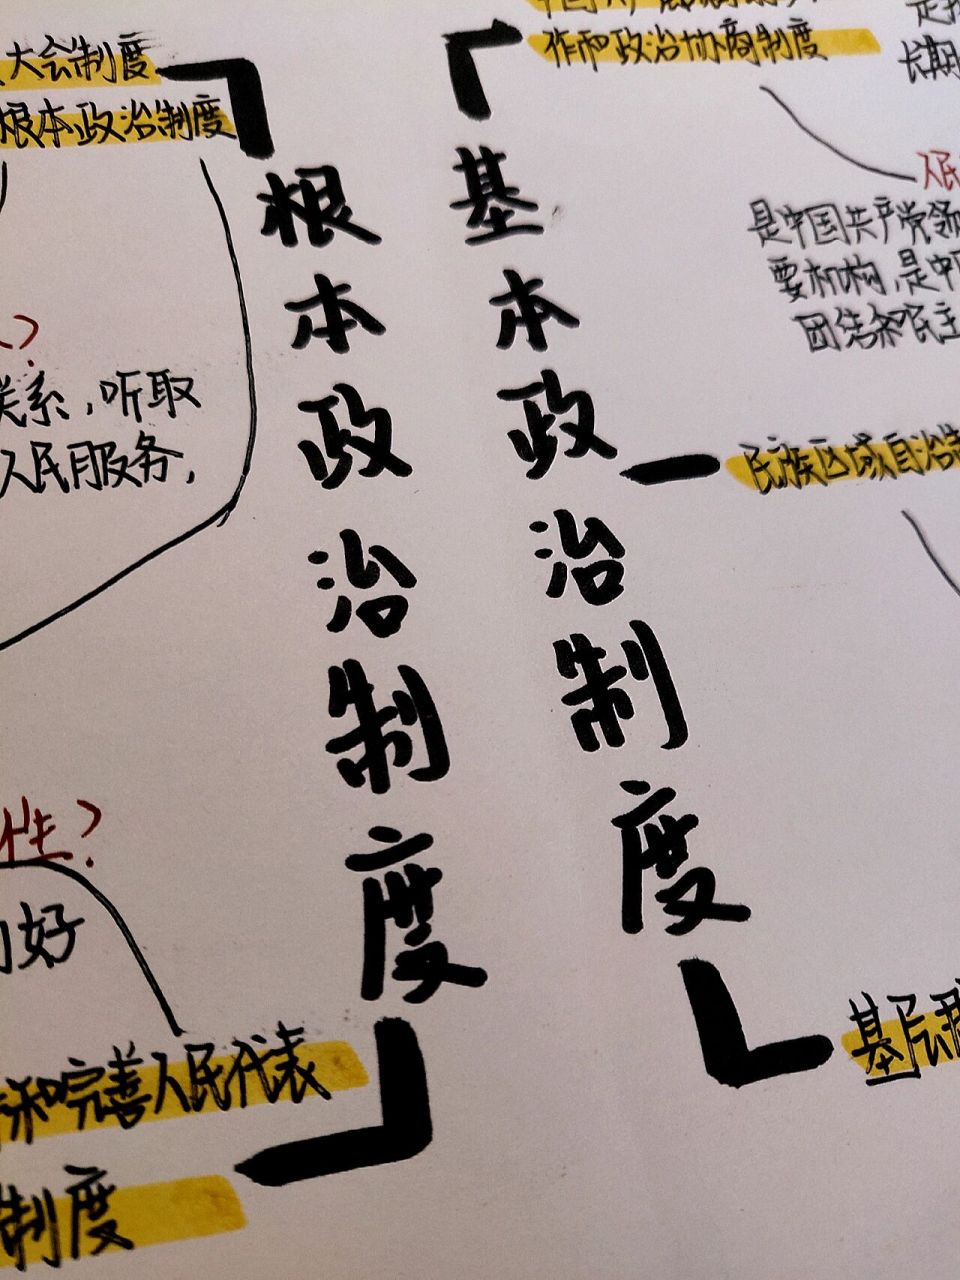 大会制度
根本政治制度
根本政治制度
？
联系，听取
人民服务，
性？
好
和完善人民代表
制度
基本政治制度
作和政治协商制度
长期
人民
是中国共产党领
要机构，是中
团结和民主
民族区域自治制
基层